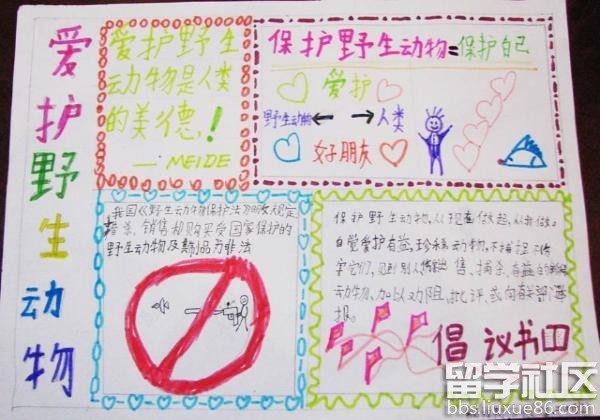 爱护野生动物
爱护野生
动物是人类
的美德!
—MEIDE
保护野生动物=保护自己
爱护
野生动物 人类
好朋友
我国《野生动物保护法》明文规定,
捕杀、销售和购买受国家保护的
野生动物及制品为非法
保护野生动物,从现在做起,从我做。
自觉爱护有益、珍稀动物,不捕捉不伤
害它们,见到别人售、捕杀、有益的
动物、加以劝阻、批评或向有
报。
倡议书
留学社区
bbs.liuxue86.com